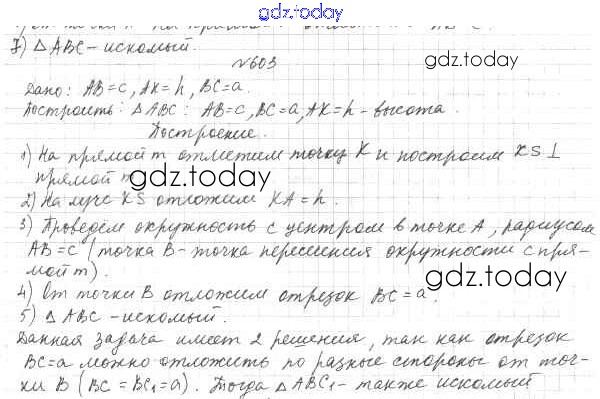 gdz.today
7) △ABC – искомый.
№603
Дано: AB=c, AK=h, BC=a.
Построить: △ABC: AB=c, BC=a, AK=h – высота.
Построение.
1) На прямой m отметим точку K и построим KS⊥
прямой m
gdz.today
2) На луче KS отложим KA=h.
3) Проведём окружность с центром в точке A, радиусом
AB=c (точка B – точка пересечения окружности с пря-
мой m).
gdz.today
4) От точки B отложим отрезок BC=a.
5) △ABC – искомый.
Данная задача имеет 2 решения, так как отрезок
BC=a можно отложить по разные стороны от точ-
ки B (BC=BC₁=a). Тогда △ABC₁ – также искомый
gdz.today